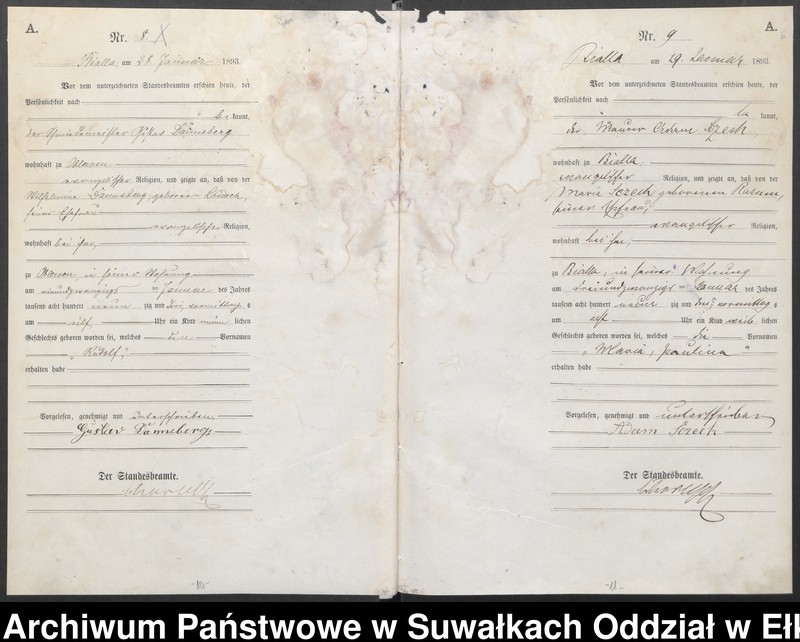 A.
Nr. 8.
Bialla, am 28. Januar 1893.
Vor dem unterzeichneten Standesbeamten erschien heute, der
Persönlichkeit nach
be kannt,
der Schmiedemeister Gustav Danneberg
wohnhaft zu
evangelischer Religion, und zeigte an, daß von der
Wilhelmine Danneberg geborenen
seiner Ehefrau
evangelischer Religion,
wohnhaft bei ihm,
zu in seiner Wohnung
am Januar des Jahres
tausend acht hundert neun zig und drei, vormittags
um elf Uhr ein Kind männ lichen
Geschlechts geboren worden sei, welches den Vornamen
„Rudolf"
erhalten habe
Vorgelesen, genehmigt und unterschrieben.
Gustav Danneberg
Der Standesbeamte.
-10-
A.
Nr. 9
Bialla am 29. Januar 1893.
Vor dem unterzeichneten Standesbeamten erschien heute, der
Persönlichkeit nach
be kannt,
der Maurer Adam Sczech,
wohnhaft zu Bialla,
evangelischer Religion, und zeigte an, daß von der
Maria Sczech geborenen
seiner Ehefrau,
evangelischer Religion,
wohnhaft bei ihm,
zu Bialla, in seiner Wohnung
am dreiundzwanzigsten Januar des Jahres
tausend acht hundert neun zig und drei, vormittags
um acht Uhr ein Kind weib lichen
Geschlechts geboren worden sei, welches die Vornamen
„Maria, Paulina"
erhalten habe
Vorgelesen, genehmigt und unterschrieben
Adam Sczech
Der Standesbeamte.
-11-
Archiwum Państwowe w Suwałkach Oddział w Eł